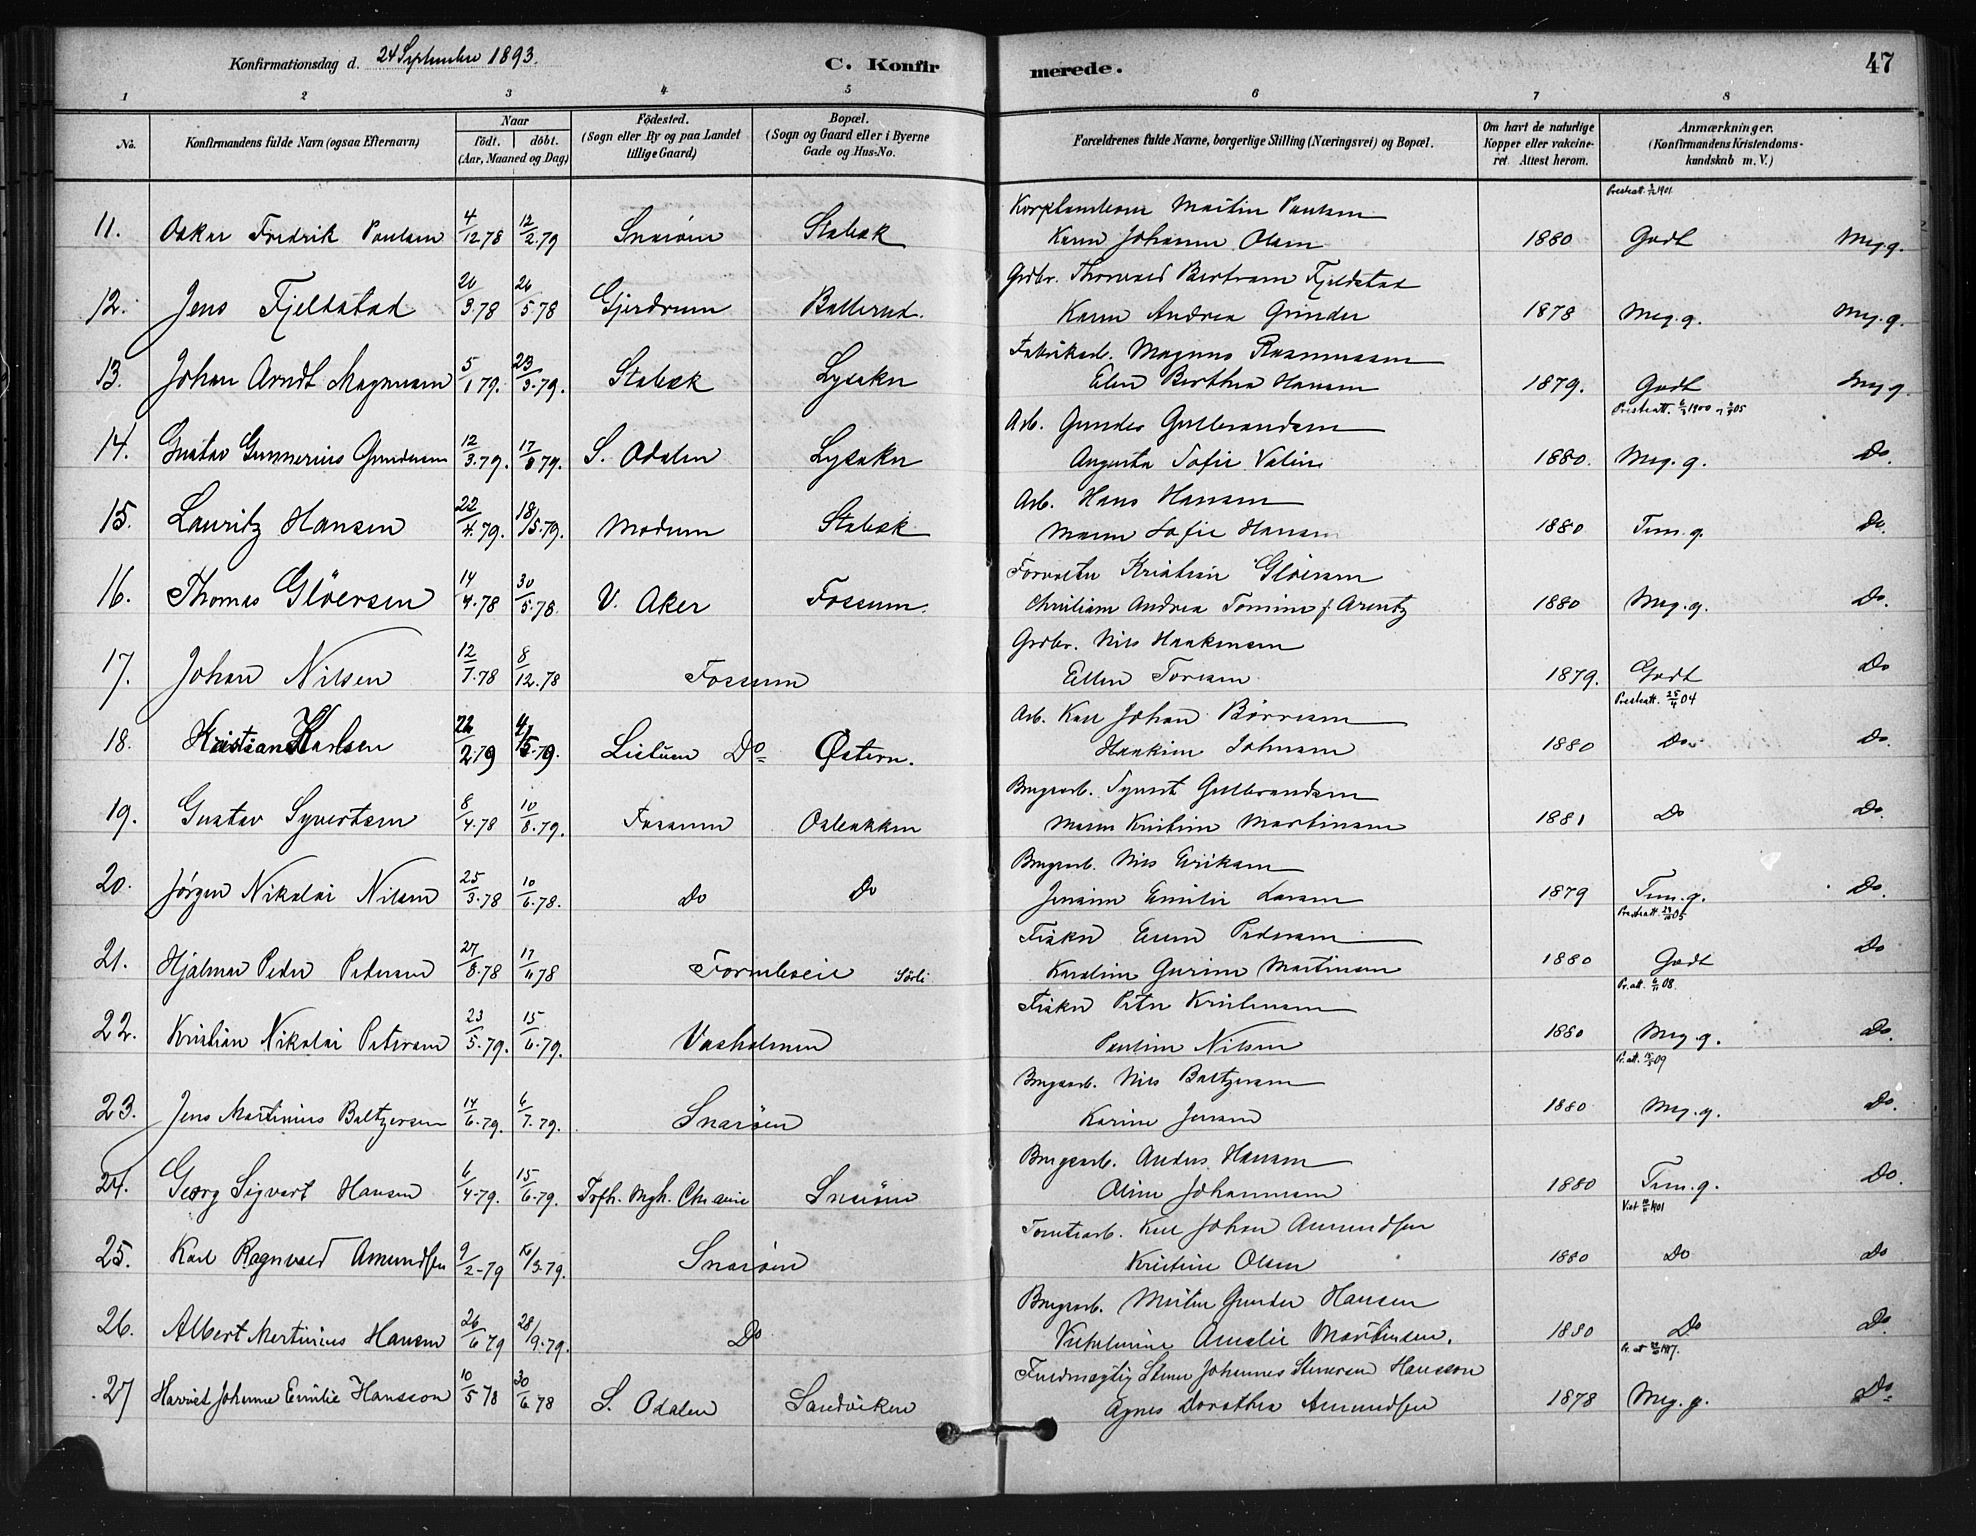 Konfirmationsdag d. 24 September 1893.
C. Konfirmerede.
47
1 2 3 4 5 6 7 8
No.
Konfirmandens fulde Navn (ogsaa Efternavn)
Naar
født. døbt.
(Aar, Maaned og Dag)
Födested.
(Sogn eller By og paa Landet
tillige Gaard)
Bopæl.
(Sogn og Gaard eller i Byerne
Gade og Hus-No.
Forældrenes fulde Navne, borgerlige Stilling (Næringsvei) og Bopæl.
Om havt de naturlige
Kopper eller vakcine-
ret. Attest herom.
Anmærkninger.
(Konfirmandens Kristendoms-
kundskab m. V.)
Martin Paulsen
11. Oskar Fredrik Paulsen 4/12 78 12/2.79 Snarøen Stabæk Karen Johanne Olsen 1880 Godt Meg.g.
Grdbr. Thorvald Bertram Fjeldstad
12. Jens Fjeldstad 20/3.78 26/5.78 Gjerdrum Ballerud. Karen Andrea Grinder 1878 Meg.g. Meg.g.
Fabrikarb. Magnus Rasmussen
13. Johan Arndt Magnusen 5/1 79. 23/3.79. Stabæk Lysaker Elen Berthea Hansen 1879. Godt Meg.g
Arb. Gunder Gulbrandsen
14. Gustav Gunnerius Gundersen 12/3.79. 17/8 79. S. Odalen Lysaker Augusta Sofie 1880. Meg.g. Do.
Arb. Hans Hansen
15. Lauritz Hansen 22/4.79. 18/5.79. Modum Stabæk Maren Sofie Hansen 1880 Tem.g. Do.
Forvalter Kristian Gløersen
16. Thomas Gløersen 14/4.78 30/5.78. V. Aker Fossum. Christiane Andrea Tomine f. Arentz 1880 Meg.g. Do.
Grdbr. Nils Haakensen
17. Johan Nilsen 12/7.78 8/12.78 Fossum Ellen Toresen 1879. Godt Do
Arb. Karl Johan Börresen
18. Kristian Karlsen 22/2.79 4/5.79. Listuen Do Østern. Johnsen 1880 Do. Do.
Brugsarb. Syvert Gulbrandsen
19. Gustav Syvertsen 8/4.78 10/8.79. Fossum Osbakken Maren Kristine Martinsen 1881 Do Do.
Brugsarb. Nils Eriksen
20. Jörgen Nikolai Nilsen 25/3.78 10/6.78. Do Do Emilie Larsen 1879 Tem.g. Do.
Fisker Pedersen
21. Hjalmar Peder Pedersen 27/3.78 17/6 78 Fornebveie Karoline Gurine Martinsen 1880 Godt Do
Fisker Peter Kristensen
22. Kristian Nikolai Petersen 23/5.79. 15/6.79. Vasholmen Pauline Nilsen 1880 Meg.g. Do.
Brugsarb. Nils Baltzersen
23. Jens Martinius Baltzersen 14/6.79. 6/7.79. Snarøen Karine Jensen 1880 Meg.g. Do.
Brugsarb. Anders Hansen
24. Georg Sigvart Hansen 6/4.79. 15/6.79. Snarøen Oline Johannesen 1880 Tem.g. Do.
Tomtearb. Karl Johan Amundsen
25. Karl Ragnvald Amundsen 9/2-79 16/3.79. Snarøen Kristine Olsen 1880 Do Do
Brugsarb. Martin Gunder Hansen
26. Albert Martinius Hansen 26/6 79 28/9.79. Do Vilhelmine Amalie Martinsen. 1880 Do Do.
Fuldmægtig Johannes Hansson
27 Harriet Johanne Emilie Hansson 10/5 78 30/6 78 S. Odalen Sandviken Agnes Dorothea Amundsen 1878 Meg.g. Do